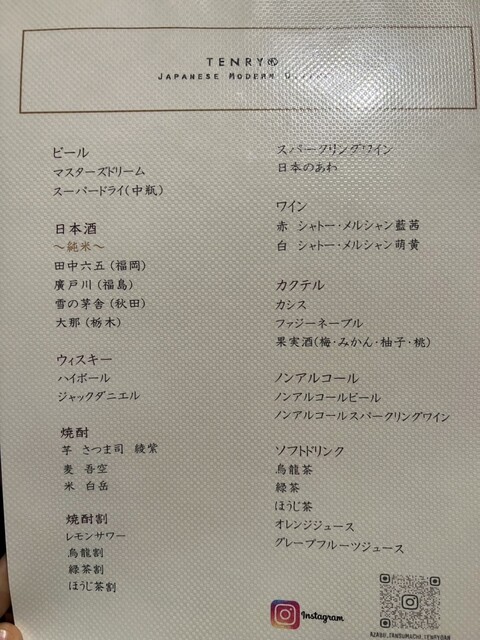 JAPANESE MODERN
ビール
マスターズドリーム
スーパードライ(中瓶)
日本酒
～純米～
田中六五(福岡)
廣戸川(福島)
雪の茅舎(秋田)
大那(栃木)
ウィスキー
ハイボール
ジャックダニエル
焼酎
芋 さつま司 綾紫
麦 吾空
米 白岳
焼酎割
レモンサワー
烏龍割
緑茶割
ほうじ茶割
スパークリングワイン
日本のあわ
ワイン
赤 シャトー・メルシャン藍茜
白 シャトー・メルシャン萌黄
カクテル
カシス
ファジーネーブル
果実酒(梅・みかん・柚子・桃)
ノンアルコール
ノンアルコールビール
ノンアルコールスパークリングワイン
ソフトドリンク
烏龍茶
緑茶
ほうじ茶
オレンジジュース
グレープフルーツジュース
Instagram
AZABU_TANSUMACHI_TENRYOAN